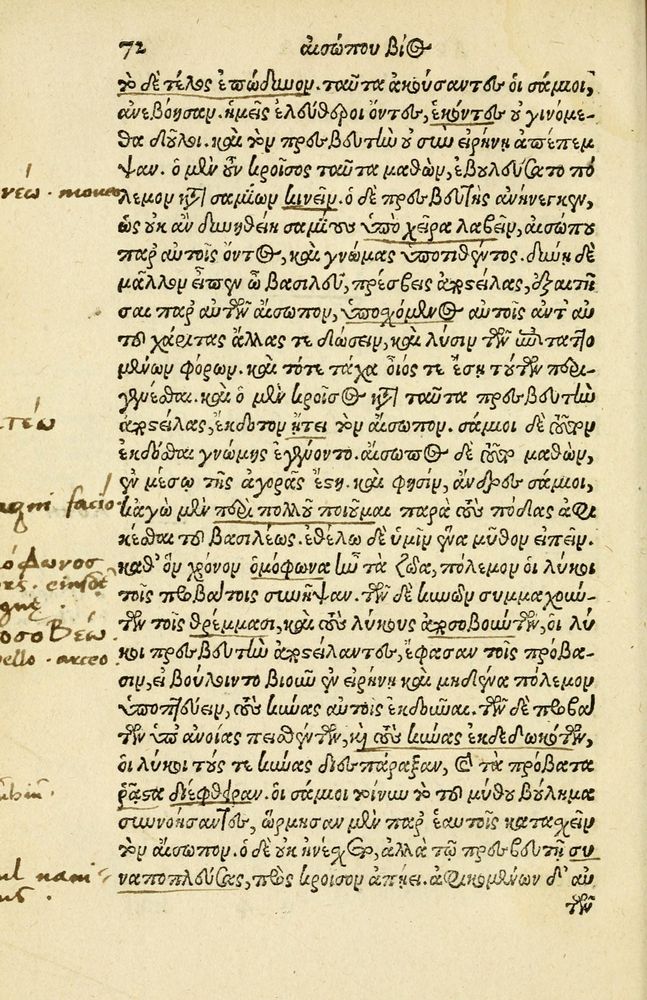 72 αἰσώπου βίος
τὸ δὲ τέλος ἐπώδυνον. ταῦτα ἀκούσαντες οἱ σάμιοι,
ἀνεβόησαν. ἡμεῖς ἐλεύθεροι ὄντες, ἑκόντες οὐ γινόμε-
θα δοῦλοι. καὶ τὸν πρεσβευτὴν οὐ σὺν εἰρήνῃ ἀπέπεμ
ψαν. ὁ μὲν οὖν κροῖσος ταῦτα μαθὼν, ἐβουλεύσατο πό
νέω . moveo
λεμον κατὰ σαμίων κινεῖν. ὁ δὲ πρεσβευτὴς ἀνήνεγκεν,
ὡς οὐκ ἂν δυνηθείη σαμίους ὑπὸ χεῖρα λαβεῖν, αἰσώπου
παρ' αὐτοῖς ὄντος, καὶ γνώμας ὑποτιθέντος. δύνῃ δὲ
μᾶλλον εἶπεν ὦ βασιλεῦ, πρέσβεις ἀποστείλας, ἐξαιτῆ
σαι παρ' αὐτῶν αἴσωπον, ὑποσχόμενος αὐτοῖς ἀντ' αὐ
τοῦ χάριτας ἄλλας τε δώσειν, καὶ λύσιν τῶν ἐπιταττο
μένων φόρων. καὶ τότε τάχα οἷός τε ἔσῃ τούτων περι-
γενέσθαι. καὶ ὁ μὲν κροῖσος κατὰ ταῦτα πρεσβευτὴν
τέω
ἀποστείλας, ἔκδοτον ᾔτει τὸν αἴσωπον. σάμιοι δὲ τοῦτον
ἐκδόσθαι γνώμης ἐγένοντο. αἴσωπος δὲ τοῦτο μαθὼν,
ἐν μέσῳ τῆς ἀγορᾶς ἔστη. καὶ φησὶν, ἄνδρες σάμιοι,
agni facio
κἀγὼ μὲν περὶ πολλοῦ ποιοῦμαι παρὰ τοὺς πόδας ἀφι
κέσθαι τοῦ βασιλέως. ἐθέλω δὲ ὑμῖν ἕνα μῦθον εἰπεῖν.
όφωνος
καθ' ὃν χρόνον ὁμόφωνα ἦν τὰ ζῶα, πόλεμον οἱ λύκοι
τοῖς προβάτοις συνῆψαν. τῶν δὲ κυνῶν συμμαχούν-
των τοῖς θρέμμασι, καὶ τοὺς λύκους ἀποσοβούντων, οἱ λύ
οσοβέω.
κοι πρεσβευτὴν ἀποστείλαντες, ἔφασαν τοῖς πρόβα-
pello . arceo
σιν, εἰ βούλοιντο βιοῦν ἐν εἰρήνῃ καὶ μηδένα πόλεμον
ὑποπτεύειν, τοὺς κύνας αὐτοῖς ἐκδοῦναι. τῶν δὲ προβά
των ὑπ' ἀνοίας πεισθέντων, καὶ τοὺς κύνας ἐκδεδωκότων,
οἱ λύκοι τούς τε κύνας διεσπάραξαν, καὶ τὰ πρόβατα
ῥᾷστα διέφθειραν. οἱ σάμιοι τοίνυν τὸ τοῦ μύθου βούλημα
συννοήσαντες, ὥρμησαν μὲν παρ' ἑαυτοῖς κατασχεῖν
τὸν αἴσωπον. ὁ δὲ οὐκ ἠνέσχετο, ἀλλὰ τῷ πρεσβευτῇ συ
ναποπλεύσας, πρὸς κροῖσον ἀπῄει. ἀφικομένων δ' αὐ
τῶν